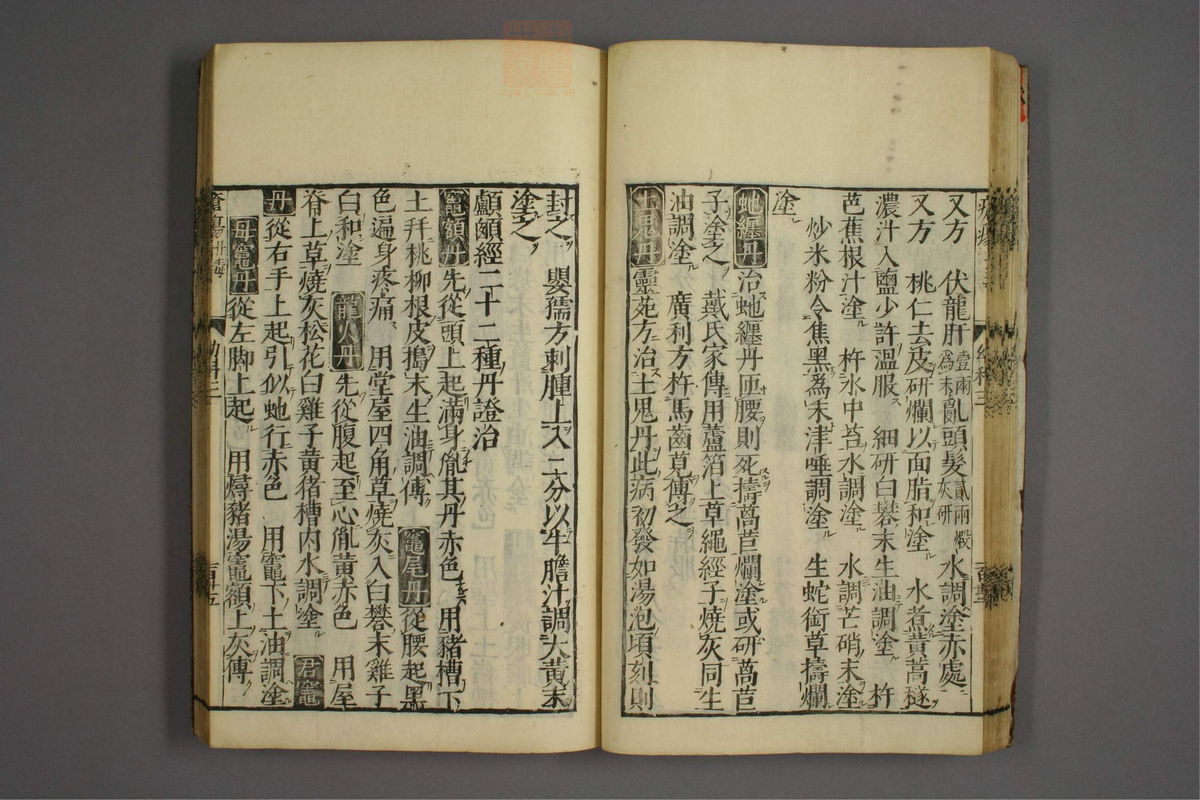 又方 伏龍肝壹兩為末亂頭髮貳兩煅灰研水調塗赤處
又方 桃仁去皮研爛以面脂和塗 水煮黃蒿𥻘
濃汁入鹽少許溫服 細研白礬末生油調塗 杵
芭蕉根汁塗 杵水中苔水調塗 水調芒硝末塗
炒米粉令焦黑為末津唾調塗 生蛇銜草擣爛
塗
虵纏丹 治虵纏丹匝腰則死擣萵苣爛塗或研萵苣
子塗之 戴氏家傳用蘆箔上草繩經子燒灰同生
油調塗 廣利方杵馬齒莧傅之
土鬼丹 靈苑方治土鬼丹此病初發如湯泡頃刻則
封之 嬰孺方刺腫上入二分以牛膽汁調大黃末
塗之
顱顖經二十二種丹證治
竈額丹 先從頭上起滿身胤其丹赤色 用豬槽下
土并桃柳根皮搗末生油調傅 竈尾丹 從腰起黑
色遍身疼痛 用堂屋四角草燒灰入白礬末雞子
白和塗 龍火丹 先從腹起至心胤黃赤色 用屋
脊上草燒灰松花白雞子黃猪槽內水調塗 君竈
丹 從右手上起引似虵行赤色 用竈下土油調塗
母竈丹 從左脚上起 用燖豬湯竈額上灰傅